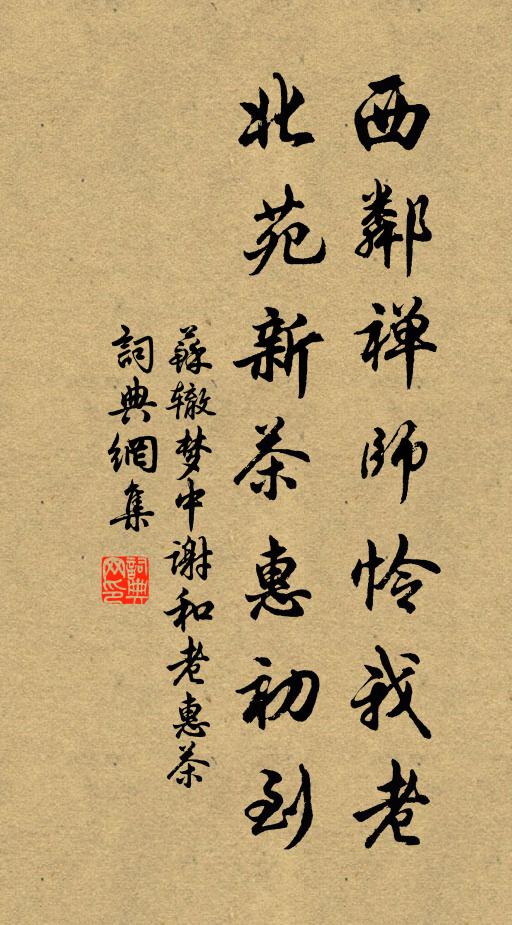 西鄰禅师怜我老
北苑新茶惠初到
蘇辙梦中谢和老惠茶
詞典網集
詞典网印